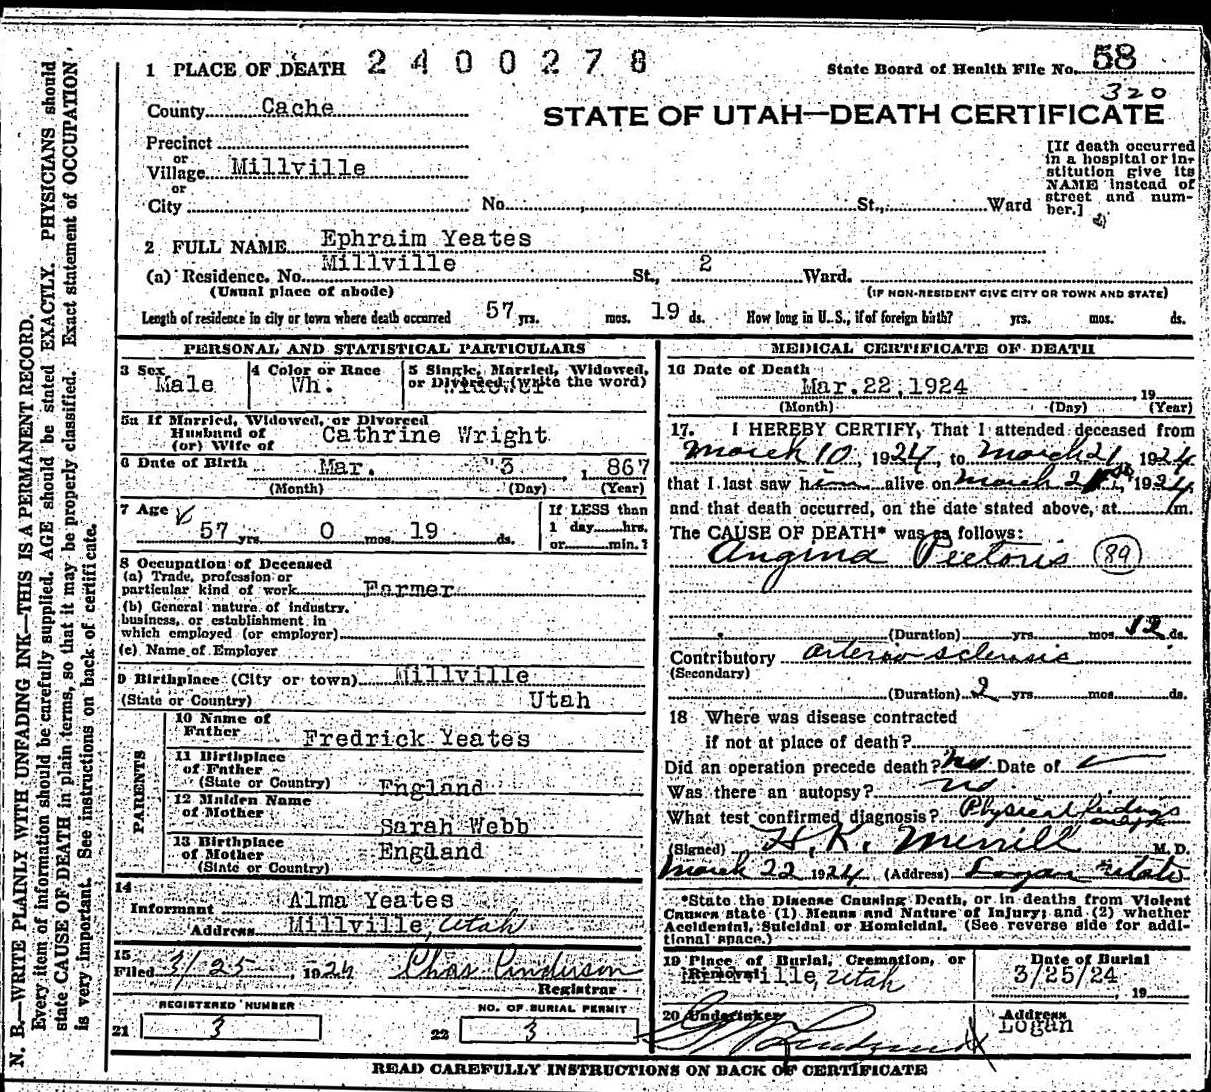 1 PLACE OF DEATH 2400278 State Board of Health File No. 58
320
County Cache STATE OF UTAH—DEATH CERTIFICATE
Precinct
or
Village Millville
or
City No. St., Ward
[If death occurred
in a hospital or in-
stitution give its
NAME instead of
street and num-
ber.]
2 FULL NAME Ephraim Yeates
(a) Residence. No. Millville St., 2 Ward.
(Usual place of abode) (IF NON-RESIDENT GIVE CITY OR TOWN AND STATE)
Length of residence in city or town where death occurred 57 yrs. mos. 19 ds. How long in U. S., if of foreign birth? yrs. mos. ds.
PERSONAL AND STATISTICAL PARTICULARS
3 Sex Male
4 Color or Race Wh.
5 Single, Married, Widowed,
or Divorced (write the word)
Widower
5a If Married, Widowed, or Divorced
Husband of
(or) Wife of Cathrine Wright
6 Date of Birth Mar. 3, 1867
(Month) (Day) (Year)
7 Age 57 yrs. 0 mos. 19 ds.
If LESS than
1 day hrs.
or min.?
8 Occupation of Deceased
(a) Trade, profession or
particular kind of work Farmer
(b) General nature of industry,
business, or establishment in
which employed (or employer)
(c) Name of Employer
9 Birthplace (City or town) Millville
(State or Country) Utah
PARENTS
10 Name of
Father Fredrick Yeates
11 Birthplace
of Father
(State or Country) England
12 Maiden Name
of Mother Sarah Webb
13 Birthplace
of Mother England
(State or Country)
14
Informant Alma Yeates
Address Millville, Utah
15
Filed 3/25, 1924 Chas Anderson
Registrar
REGISTERED NUMBER
21 3
NO. OF BURIAL PERMIT
22 3
MEDICAL CERTIFICATE OF DEATH
16 Date of Death Mar. 22, 1924, 19
(Month) (Day) (Year)
17. I HEREBY CERTIFY, That I attended deceased from
March 10, 1924, to March 21, 1924
that I last saw him alive on March 21, 1924
and that death occurred, on the date stated above, at m.
The CAUSE OF DEATH* was as follows:
Angina Pectoris 89
(Duration) yrs. mos. 12 ds.
Contributory arterio sclerosis
(Secondary)
(Duration) 2 yrs. mos. ds.
18 Where was disease contracted
if not at place of death?
Did an operation precede death? no Date of
Was there an autopsy? no
What test confirmed diagnosis? Physical findings
(Signed) H. K. Merrill M. D.
March 22 1924 (Address) Logan Utah
*State the Disease Causing Death, or in deaths from Violent
Causes state (1) Means and Nature of Injury; and (2) whether
Accidental, Suicidal or Homicidal. (See reverse side for addi-
tional space.)
19 Place of Burial, Cremation, or
Removal
Millville, Utah
Date of Burial
3/25/24, 19
20 Undertaker
Address
Logan
READ CAREFULLY INSTRUCTIONS ON BACK OF CERTIFICATE
N. B.—WRITE PLAINLY WITH UNFADING INK—THIS IS A PERMANENT RECORD.
Every item of information should be carefully supplied. AGE should be stated EXACTLY. PHYSICIANS should
state CAUSE OF DEATH in plain terms, so that it may be properly classified. Exact statement of OCCUPATION
is very important. See instructions on back of certificate.